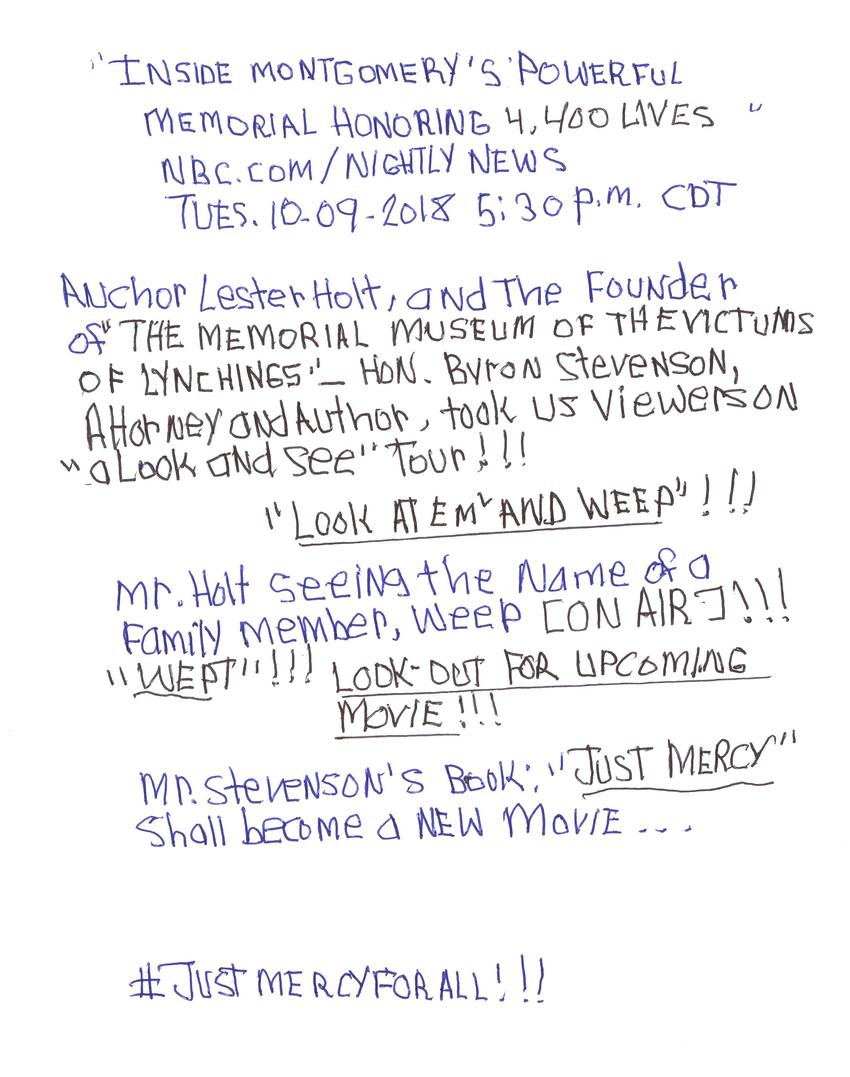 "INSIDE MONTGOMERY'S POWERFUL
MEMORIAL HONORING 4,400 LIVES "
NBC.COM/NIGHTLY NEWS
TUES. 10-09-2018 5:30 p.m. CDT
Anchor Lester Holt, and The Founder
of "THE MEMORIAL MUSEUM OF THE VICTUMS
OF LYNCHINGS"_ HON. Byron Stevenson,
Attorney and Author, took us Viewers on
"a Look and See" Tour!!!
"Look AT EM" AND WEEP"!!!
Mr. Holt seeing the Name of a
Family member, weep [ON AIR]!!!
"WEPT"!!! LOOK-OUT FOR UPCOMING
MOVIE!!!
Mr. Stevenson's Book; "JUST MERCY"
Shall become a NEW MOVIE ...
#JUSTMERCYFORALL!!!